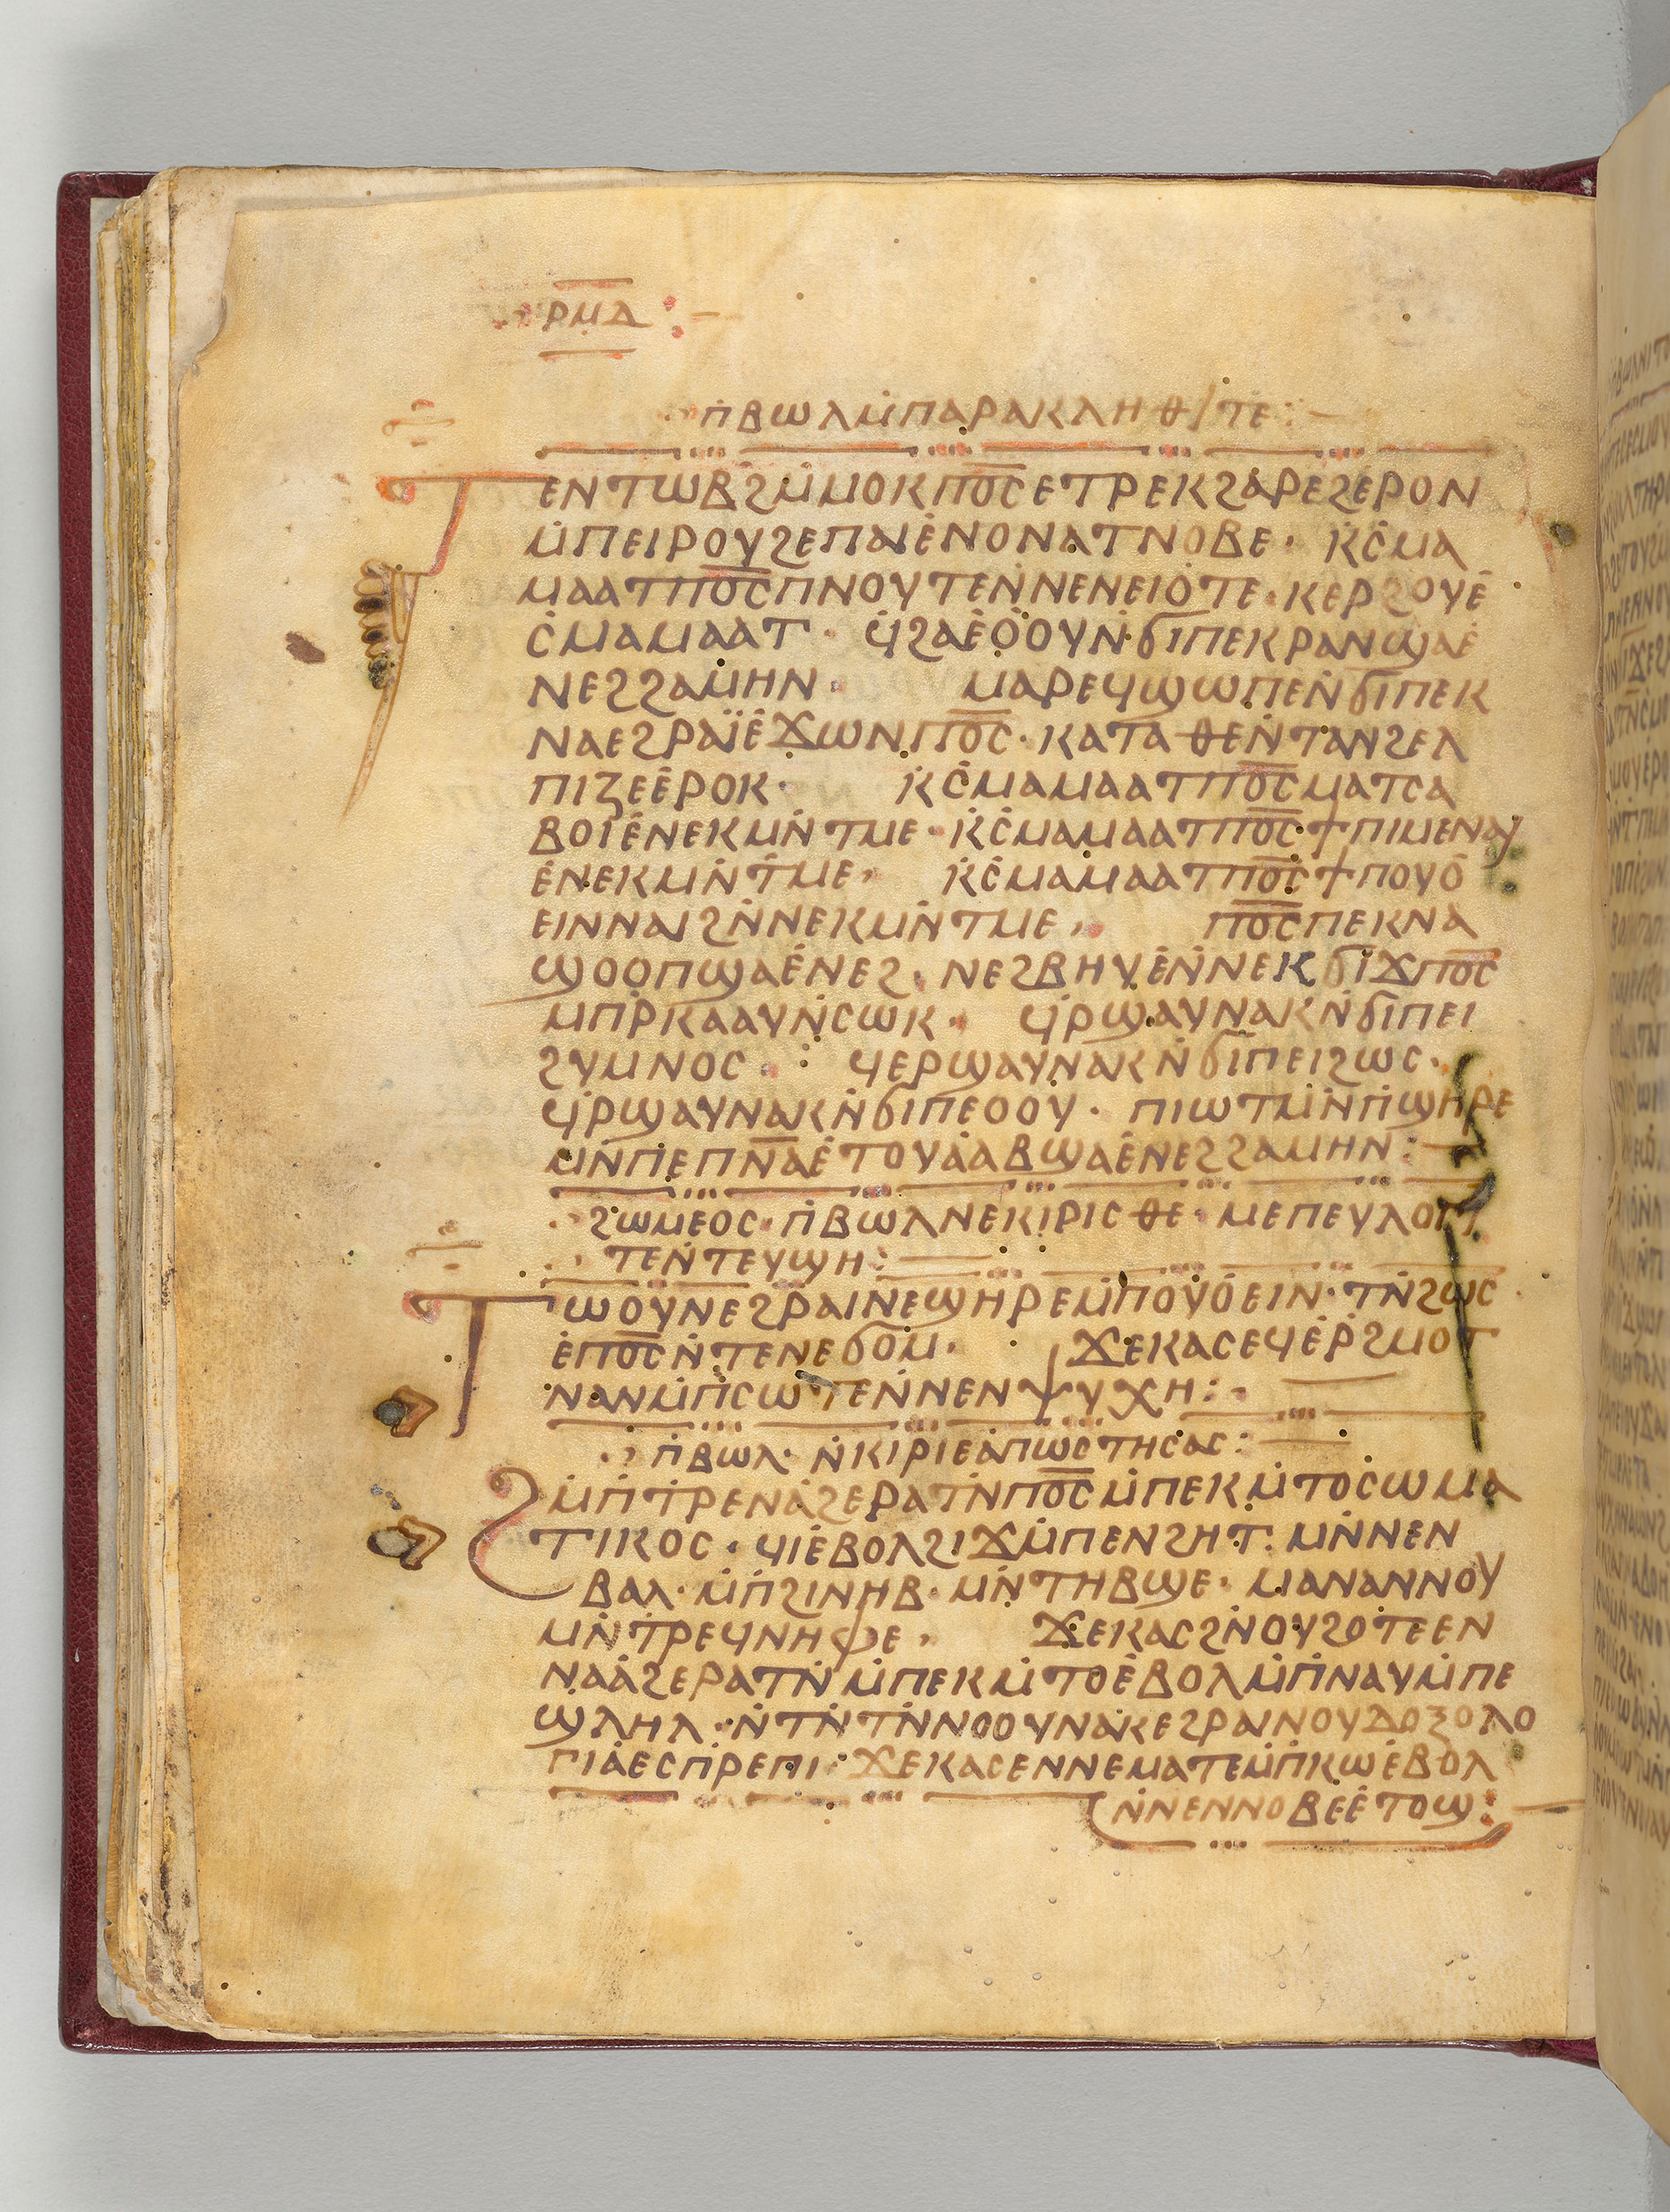 ⲣⲙⲇ
ⲡⲃⲱⲗⲙⲡⲁⲣⲁⲕⲗⲏⲑ/ⲧⲉ:
ⲧⲉⲛⲧⲱⲃϩⲙ̇ⲙⲟⲕⲡⲟ̅ⲥ̅ⲉⲧⲣⲉⲕϩⲁⲣⲉϩⲉⲣⲟⲛ
ⲙ̇ⲡⲉⲓⲣⲟⲩϩⲉⲡⲁⲓⲉ̇ⲛⲟⲛⲁⲧⲛⲟⲃⲉ· ⲕ̇ⲥ̇ⲙⲁ
ⲙⲁⲁⲧⲡⲟ̅ⲥ̅ⲡⲛⲟⲩⲧⲉⲛ̇ⲛⲉⲛⲉⲓⲟ̇ⲧⲉ· ⲕⲉⲣϩⲟⲩⲉ̇
ⲥ̇ⲙⲁⲙⲁⲁⲧ· ϥ̇ϩⲁⲉ̇ⲟ̇ⲟⲩⲛ̇ϭⲓⲡⲉⲕⲣⲁⲛϣⲁⲉ̇
ⲛⲉϩϩⲁⲙⲏⲛ· ⲙⲁⲣⲉϥϣⲱⲡⲉⲛ̇ϭⲓⲡⲉⲕ
ⲛⲁⲉϩⲣⲁⲓ̈ⲉ̇ϫⲱⲛⲡⲟ̅ⲥ̅· ⲕⲁⲧⲁⲑⲉⲛ̇ⲧⲁⲛϩⲉⲗ
ⲡⲓⲍⲉⲉ̇ⲣⲟⲕ· ⲕ̇ⲥ̇ⲙⲁⲙⲁⲁⲧⲡⲟ̅ⲥ̅ⲙⲁⲧⲥⲁ
ⲃⲟⲓⲉ̇ⲛⲉⲕⲙⲛ̇ⲧⲙⲉ· ⲕ̇ⲥ̇ⲙⲁⲙⲁⲁⲧⲡⲟ̅ⲥ̅ϯⲡⲓⲙⲉⲛⲁⲓ
ⲉ̇ⲛⲉⲕⲙⲛ̇ⲧ̇ⲙⲉ· ⲕ̇ⲥ̇ⲙⲁⲙⲁⲁⲧⲡⲟ̅ⲥ̅ϯⲡⲟⲩⲟ̇
ⲉⲓⲛⲛⲁⲓϩⲛ̇ⲛⲉⲕⲙⲛ̇ⲧⲙⲉ· ⲡⲟ̅ⲥ̅ⲡⲉⲕⲛⲁ
ϣⲟⲟⲡϣⲁⲉ̇ⲛⲉϩ· ⲛⲉϩⲃⲏⲩⲉ̇ⲛ̇ⲛⲉⲕϭⲓϫⲡⲟ̅ⲥ̅
ⲙⲡⲣ̇ⲕⲁⲁⲩⲛ̇ⲥⲱⲕ· ϥ̇ⲣ̇ϣⲁⲩⲛⲁⲕⲛ̇ϭⲓⲡⲉⲓ
ϩⲩⲙⲛⲟⲥ· ϥⲉⲣϣⲁⲩⲛⲁⲕⲛ̇ϭⲓⲡⲉⲓϩⲱⲥ·
ϥ̇ⲣ̇ϣⲁⲩⲛⲁⲕⲛ̇ϭⲓⲡⲉⲟⲟⲩ· ⲡⲓⲱⲧⲙⲛ̇ⲡ̇ϣⲏⲣⲉ
ⲙⲛ̇ⲡⲉⲡⲛ̅ⲁ̅ⲉ̇ⲧⲟⲩⲁ̇ⲁⲃϣⲁⲉ̇ⲛⲉϩϩⲁⲙⲏⲛ:
ϩⲱⲙⲉⲟⲥ· ⲡ̇ⲃⲱⲗⲛⲉⲕⲓⲣⲓⲥⲑⲉ· ⲙⲉⲡⲉⲩⲗⲟⲅⲓ
ⲧⲉⲛ̇ⲧⲉⲩϣⲏ:
ⲧⲱⲟⲩⲛⲉϩⲣⲁⲓⲛⲉϣⲏⲣⲉⲙ̇ⲡⲟⲩⲟ̇ⲉⲓⲛ· ⲧⲛ̇ϩⲱⲥ
ⲉ̇ⲡⲟ̅ⲥ̅ⲛ̇ⲧⲉⲛⲉϭⲟⲙ· ϫⲉⲕⲁⲥⲉϥⲉ̇ⲣ̇ϩⲙⲟⲧ
ⲛⲁⲛⲙ̇ⲡ̇ⲥⲱⲧⲉⲛ̇ⲛⲉⲛⲯⲩⲭⲏ:
ⲡ̇ⲃⲱⲗ· ⲛ̇ⲕⲓⲣⲓⲉⲁ̇ⲡⲱⲥⲧⲏⲥⲁⲥ:
ϩⲙ̇ⲡ̇ⲧ̇ⲣⲉⲛⲁ̇ϩⲉⲣⲁⲧⲛ̇ⲡⲟ̅ⲥ̅ⲙ̇ⲡⲉⲕⲙ̇ⲧⲟⲥ̇ⲱⲙⲁ
ⲧⲓⲕⲟⲥ· ϥⲓⲉ̇ⲃⲟⲗϩⲓϫⲙ̇ⲡⲉⲛϩⲏⲧ· ⲙⲛ̇ⲛⲉⲛ
ⲃⲁⲗ· ⲙ̇ⲡ̇ϩⲓⲛⲏⲃ· ⲙⲛ̇ⲧⲏⲃϣⲉ· ⲙⲁⲛⲁⲛⲛⲟⲩ
ⲙⲛ̇ⲧ̇ⲣⲉϥⲛⲏⲫⲉ· ϫⲉⲕⲁⲥϩⲛ̇ⲟⲩϩⲟⲧⲉⲉⲛ
ⲛⲁⲁ̇ϩⲉⲣⲁⲧⲛ̇ⲙ̇ⲡⲉⲕⲙ̇ⲧⲟⲉ̇ⲃⲟⲗⲙ̇ⲡ̇ⲛⲁⲩⲙ̇ⲡⲉ
ϣⲗⲏⲗ· ⲛ̇ⲧⲛ̇ⲧⲛ̇ⲛⲟⲟⲩⲛⲁ̇ⲕⲉϩⲣⲁⲓⲛⲟⲩⲇⲟⲝⲟⲗⲟ
ⲅⲓⲁ̇ⲉⲥⲡ̇ⲣⲉⲡⲓ· ϫⲉⲕⲁⲥⲉⲛⲛⲉⲙⲁⲧⲉⲙ̇ⲡ̇ⲕⲱⲉ̇ⲃⲟⲗ
ⲛ̇ⲛⲉⲛⲛⲟⲃⲉⲉ̇ⲧⲟϣ: